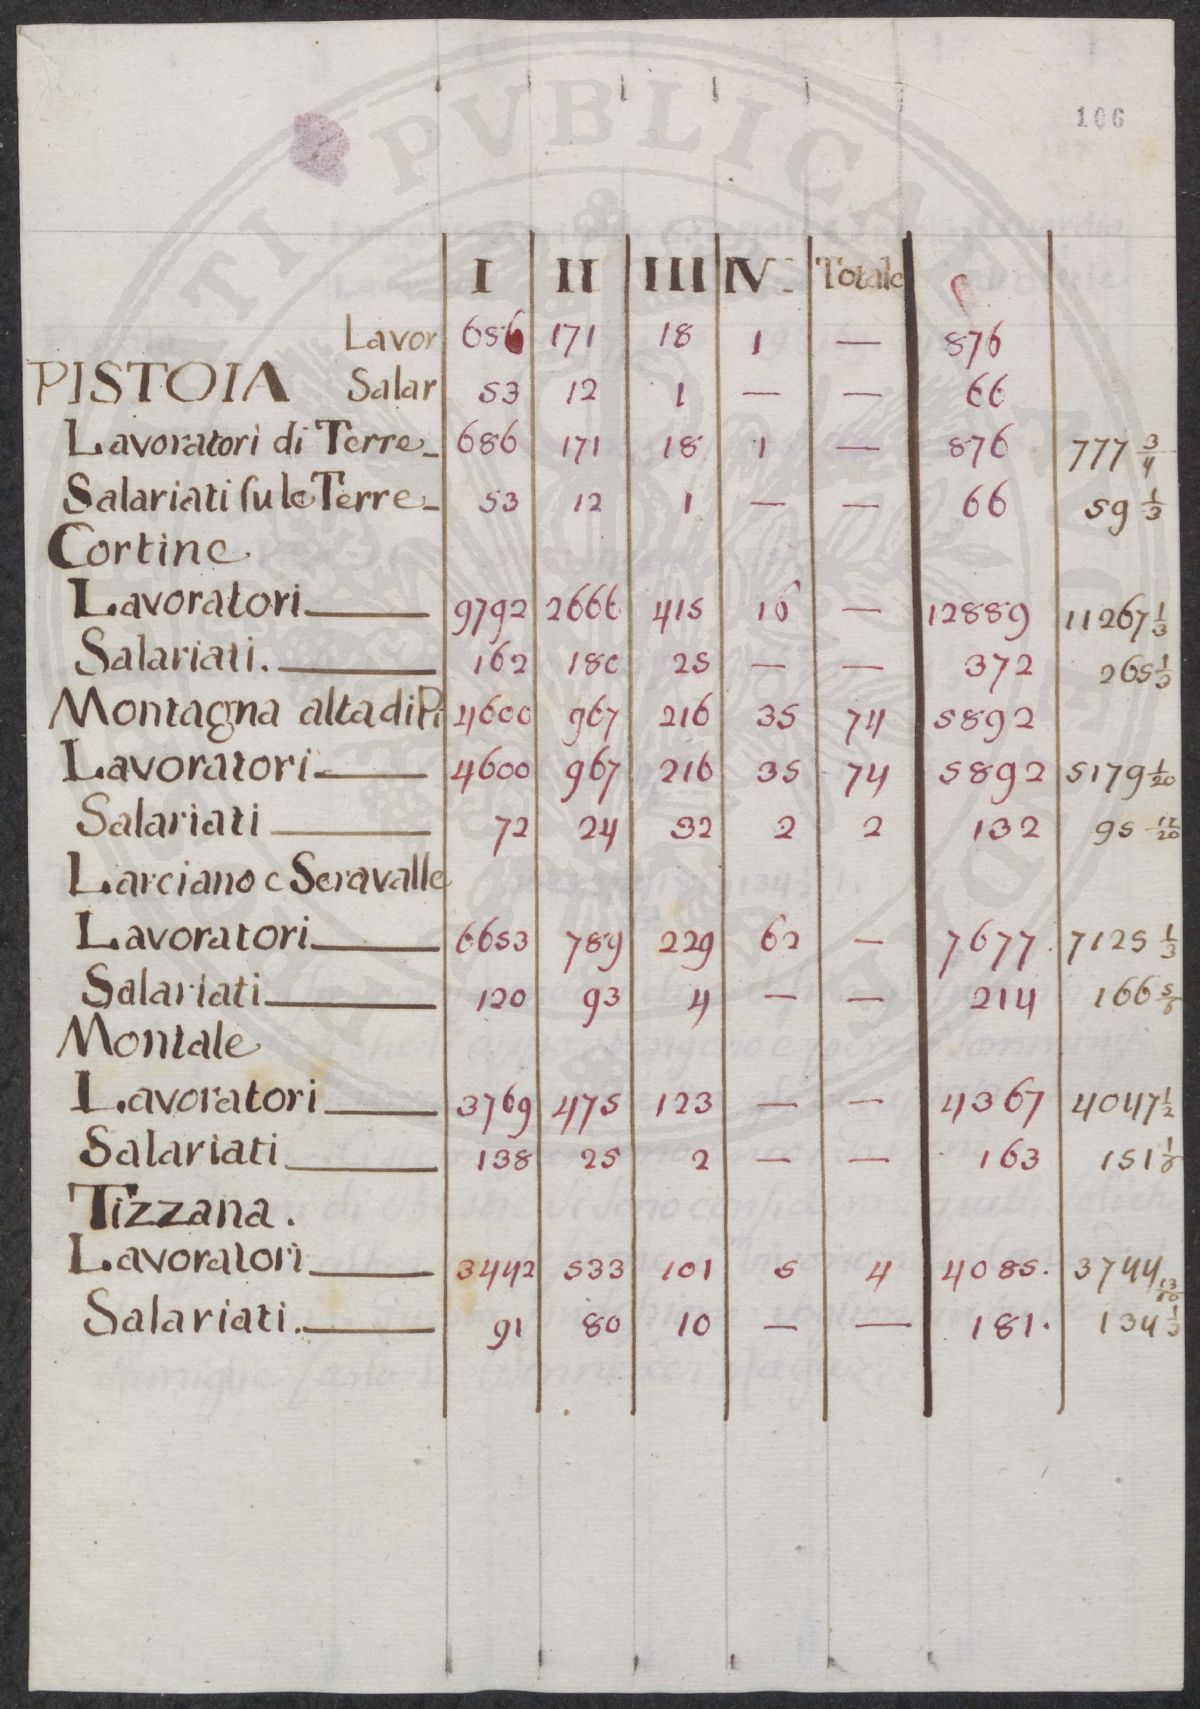 106
I II III IV Totale
Lavor 686 171 18 1 — 876
PISTOIA Salar 53 12 1 — — 66
Lavoratori di Terre 686 171 18 1 — 876 777 3/4
Salariati su le Terre 53 12 1 — — 66 59 1/3
Cortine
Lavoratori 9792 2666 415 16 — 12889 11267 1/3
Salariati. 162 180 25 — — 372 265 1/3
Montagna alta di Pi 4600 967 216 35 74 5892
Lavoratori 4600 967 216 35 74 5892 5179 1/20
Salariati 72 24 32 2 2 132 95 12/20
Larciano e Seravalle
Lavoratori 6653 789 229 62 — 7677 7125 1/3
Salariati 120 93 4 — — 214 166
Montale
Lavoratori 3769 475 123 — — 4367 4047 1/2
Salariati 138 25 2 — — 163 151
Tizzana.
Lavoratori 3442 533 101 5 4 4085. 3744
Salariati. 91 80 10 — — 181. 134 1/3